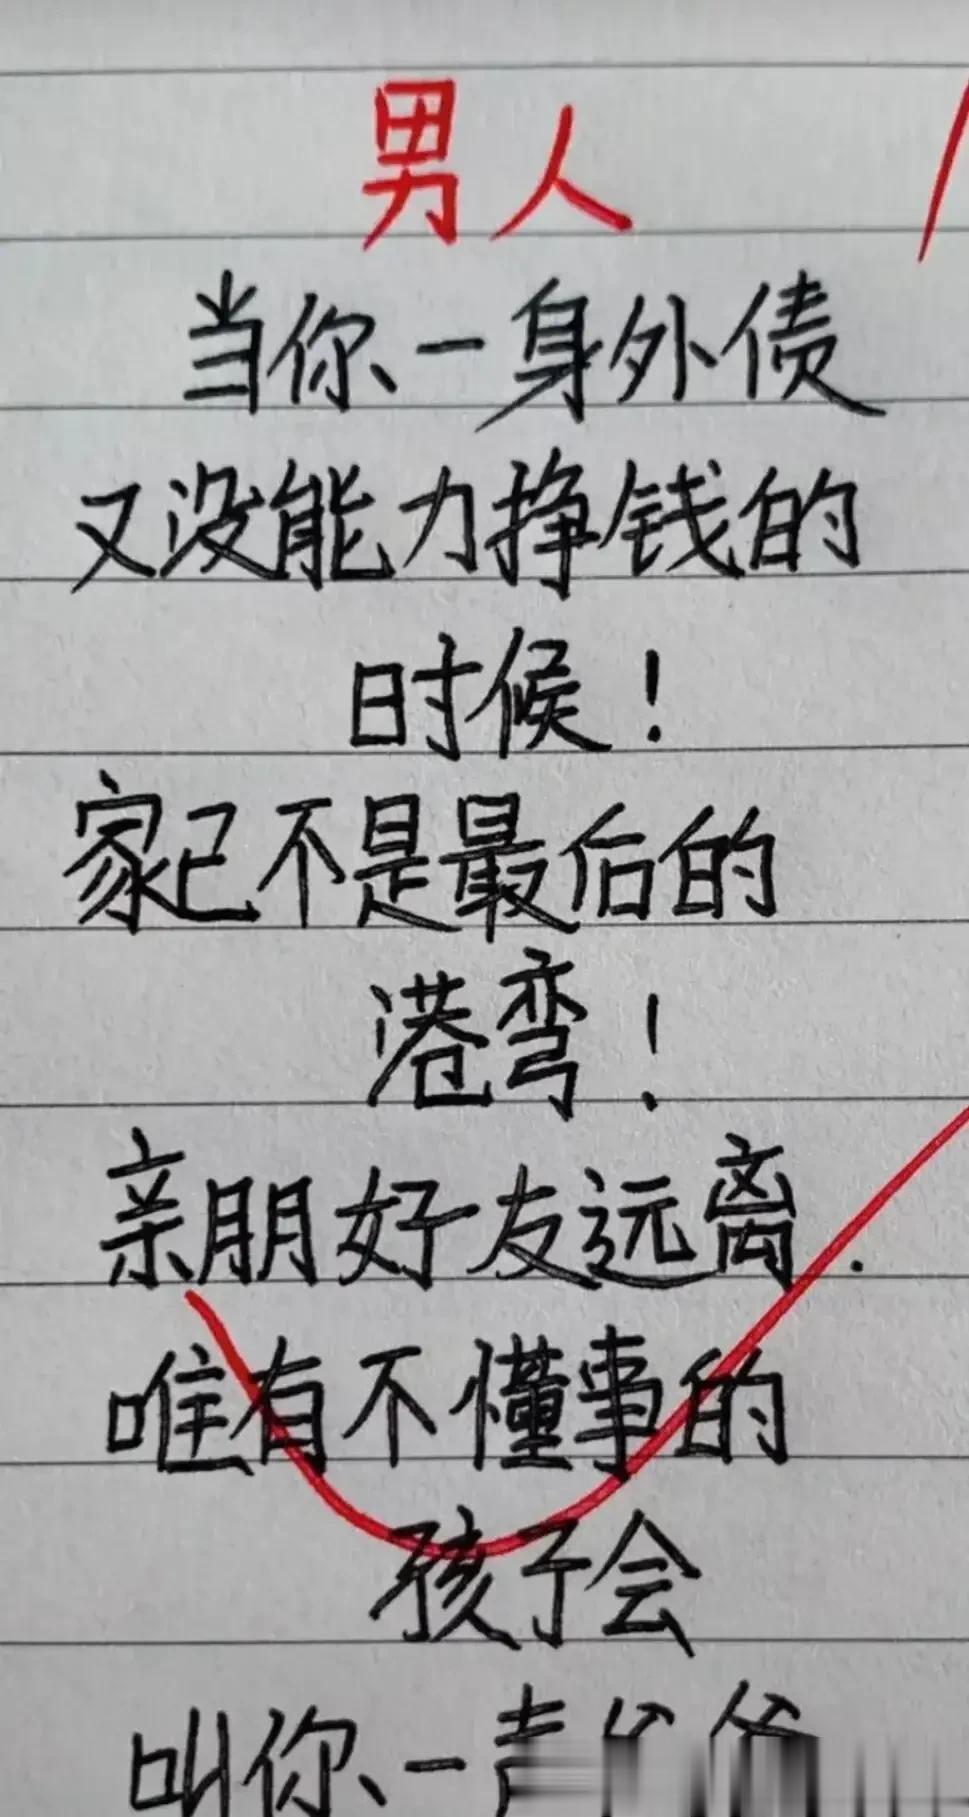 男人
当你一身外债
又没能力挣钱的
时候！
家已不是最后的
港弯！
亲朋好友远离.
唯有不懂事的
孩子会
叫你一声爸爸